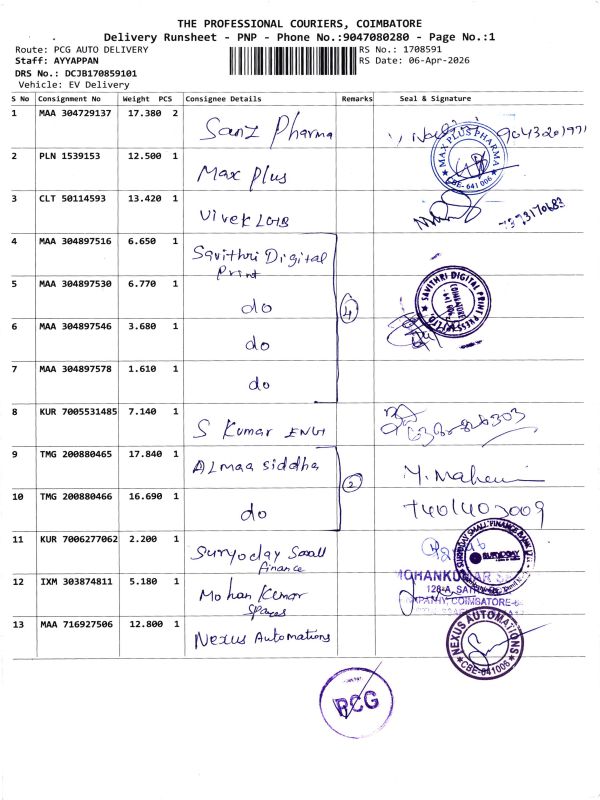 THE PROFESSIONAL COURIERS, COIMBATORE
Delivery Runsheet - PNP - Phone No.:9047080280 - Page No.:1
Route: PCG AUTO DELIVERY RS No.: 1708591
Staff: AYYAPPAN RS Date: 06-Apr-2026
DRS No.: DCJB170859101
Vehicle: EV Delivery
S No Consignment No Weight PCS Consignee Details Remarks Seal & Signature
1 MAA 304729137 17.380 2 Sanz Pharma
MAX PLUS PHARMA
★ CBE-641006 ★
2 PLN 1539153 12.500 1 Max Plus
3 CLT 50114593 13.420 1 Vivek LOHB 7373170683
4 MAA 304897516 6.650 1 Savithri Digital
Print
5 MAA 304897530 6.770 1 do 4
SAVITHRI DIGITAL PRINT PRESS
6 MAA 304897546 3.680 1 do
7 MAA 304897578 1.610 1 do
8 KUR 7005531485 7.140 1 S Kumar ENGI
9 TMG 200880465 17.840 1 ALmaa Siddha 2
10 TMG 200880466 16.690 1 do
11 KUR 7006277062 2.200 1 Suryoday Small
Finance
SURYODAY SMALL FINANCE BANK
SURYODAY
12 IXM 303874811 5.180 1 Mohan Kumar
Spares
MOHANKUMAR
COIMBATORE
13 MAA 716927506 12.800 1 Nexus Automations
NEXUS AUTOMATIONS
★ CBE-641006 ★
PCG